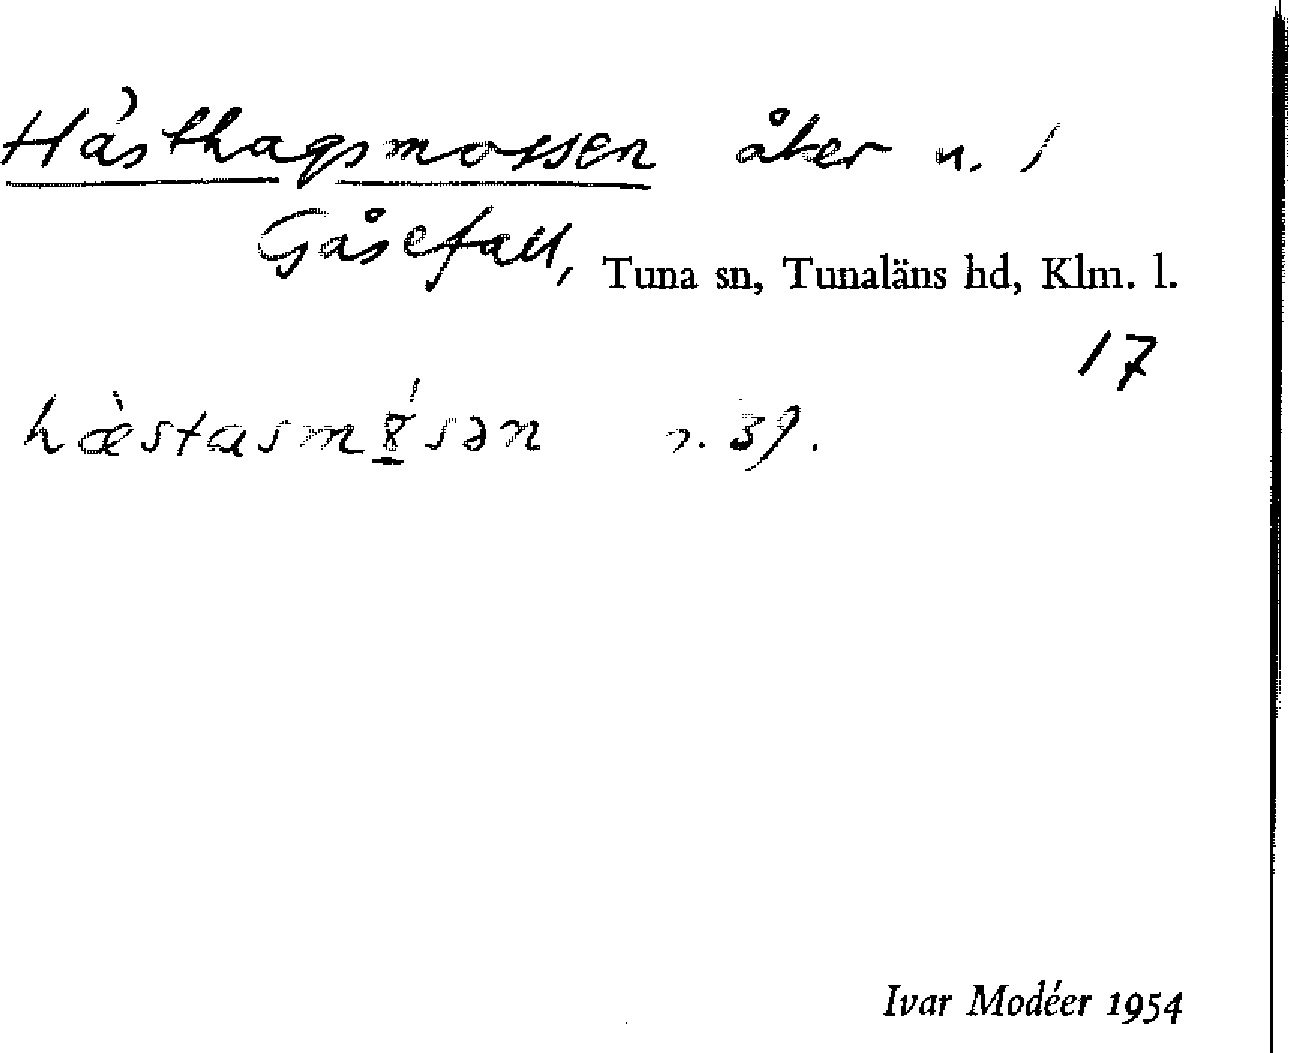 Hästhagsmossen åker u. /
Gåsefall, Tuna sn, Tunaläns hd, Klm. l.
17
hæ̀stasmɤ́sən r. 39.
Ivar Modéer 1954